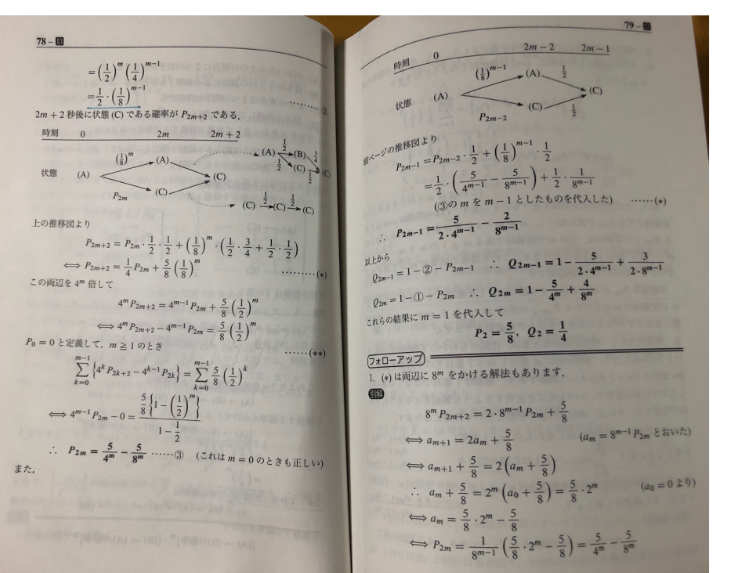 78−
= (1/2)^m (1/4)^{m−1}
= 1/2 · (1/8)^{m−1} ………②
2m + 2 秒後に状態 (C) である確率が P_{2m+2} である.
時刻 0 2m 2m + 2
(1/8)^m (A) (A) 1/2 (B) 3/4
状態 (A) (C) 1/2 (C) 1/2 (C)
P_{2m} (C) (C) 1/2 (C) 1/2 (C)
上の推移図より
P_{2m+2} = P_{2m} · 1/2 · 1/2 + (1/8)^m · (1/2 · 3/4 + 1/2 · 1/2)
⇔ P_{2m+2} = 1/4 P_{2m} + 5/8 (1/8)^m ………(*)
この両辺を 4^m 倍して
4^m P_{2m+2} = 4^{m−1} P_{2m} + 5/8 (1/2)^m
⇔ 4^m P_{2m+2} − 4^{m−1} P_{2m} = 5/8 (1/2)^m ………(**)
P_0 = 0 と定義して, m ≧ 1 のとき
Σ_{k=0}^{m−1} {4^k P_{2k+2} − 4^{k−1} P_{2k}} = Σ_{k=0}^{m−1} 5/8 (1/2)^k
⇔ 4^{m−1} P_{2m} − 0 = 5/8 {1 − (1/2)^m} / (1 − 1/2)
∴ P_{2m} = 5/4^m − 5/8^m ……③ (これは m = 0 のときも正しい)
また,
79−
時刻 0 2m − 2 2m − 1
(1/8)^{m−1} (A) 1/2
状態 (A) (C)
P_{2m−2} (C) 1/2
前ページの推移図より
P_{2m−1} = P_{2m−2} · 1/2 + (1/8)^{m−1} · 1/2
= 1/2 · (5/4^{m−1} − 5/8^{m−1}) + 1/2 · 1/8^{m−1}
(③の m を m − 1 としたものを代入した) ……(*)
∴ P_{2m−1} = 5/(2·4^{m−1}) − 2/8^{m−1}
以上から
Q_{2m−1} = 1 − ② − P_{2m−1} ∴ Q_{2m−1} = 1 − 5/(2·4^{m−1}) + 3/(2·8^{m−1})
Q_{2m} = 1 − ① − P_{2m} ∴ Q_{2m} = 1 − 5/4^m + 4/8^m
これらの結果に m = 1 を代入して
P_2 = 5/8, Q_2 = 1/4
フォローアップ
1. (*) は両辺に 8^m をかける解法もあります.
別解
8^m P_{2m+2} = 2 · 8^{m−1} P_{2m} + 5/8
⇔ a_{m+1} = 2a_m + 5/8 (a_m = 8^{m−1} P_{2m} とおいた)
⇔ a_{m+1} + 5/8 = 2 (a_m + 5/8)
∴ a_m + 5/8 = 2^m (a_0 + 5/8) = 5/8 · 2^m (a_0 = 0 より)
⇔ a_m = 5/8 · 2^m − 5/8
⇔ P_{2m} = 1/8^{m−1} (5/8 · 2^m − 5/8) = 5/4^m − 5/8^m